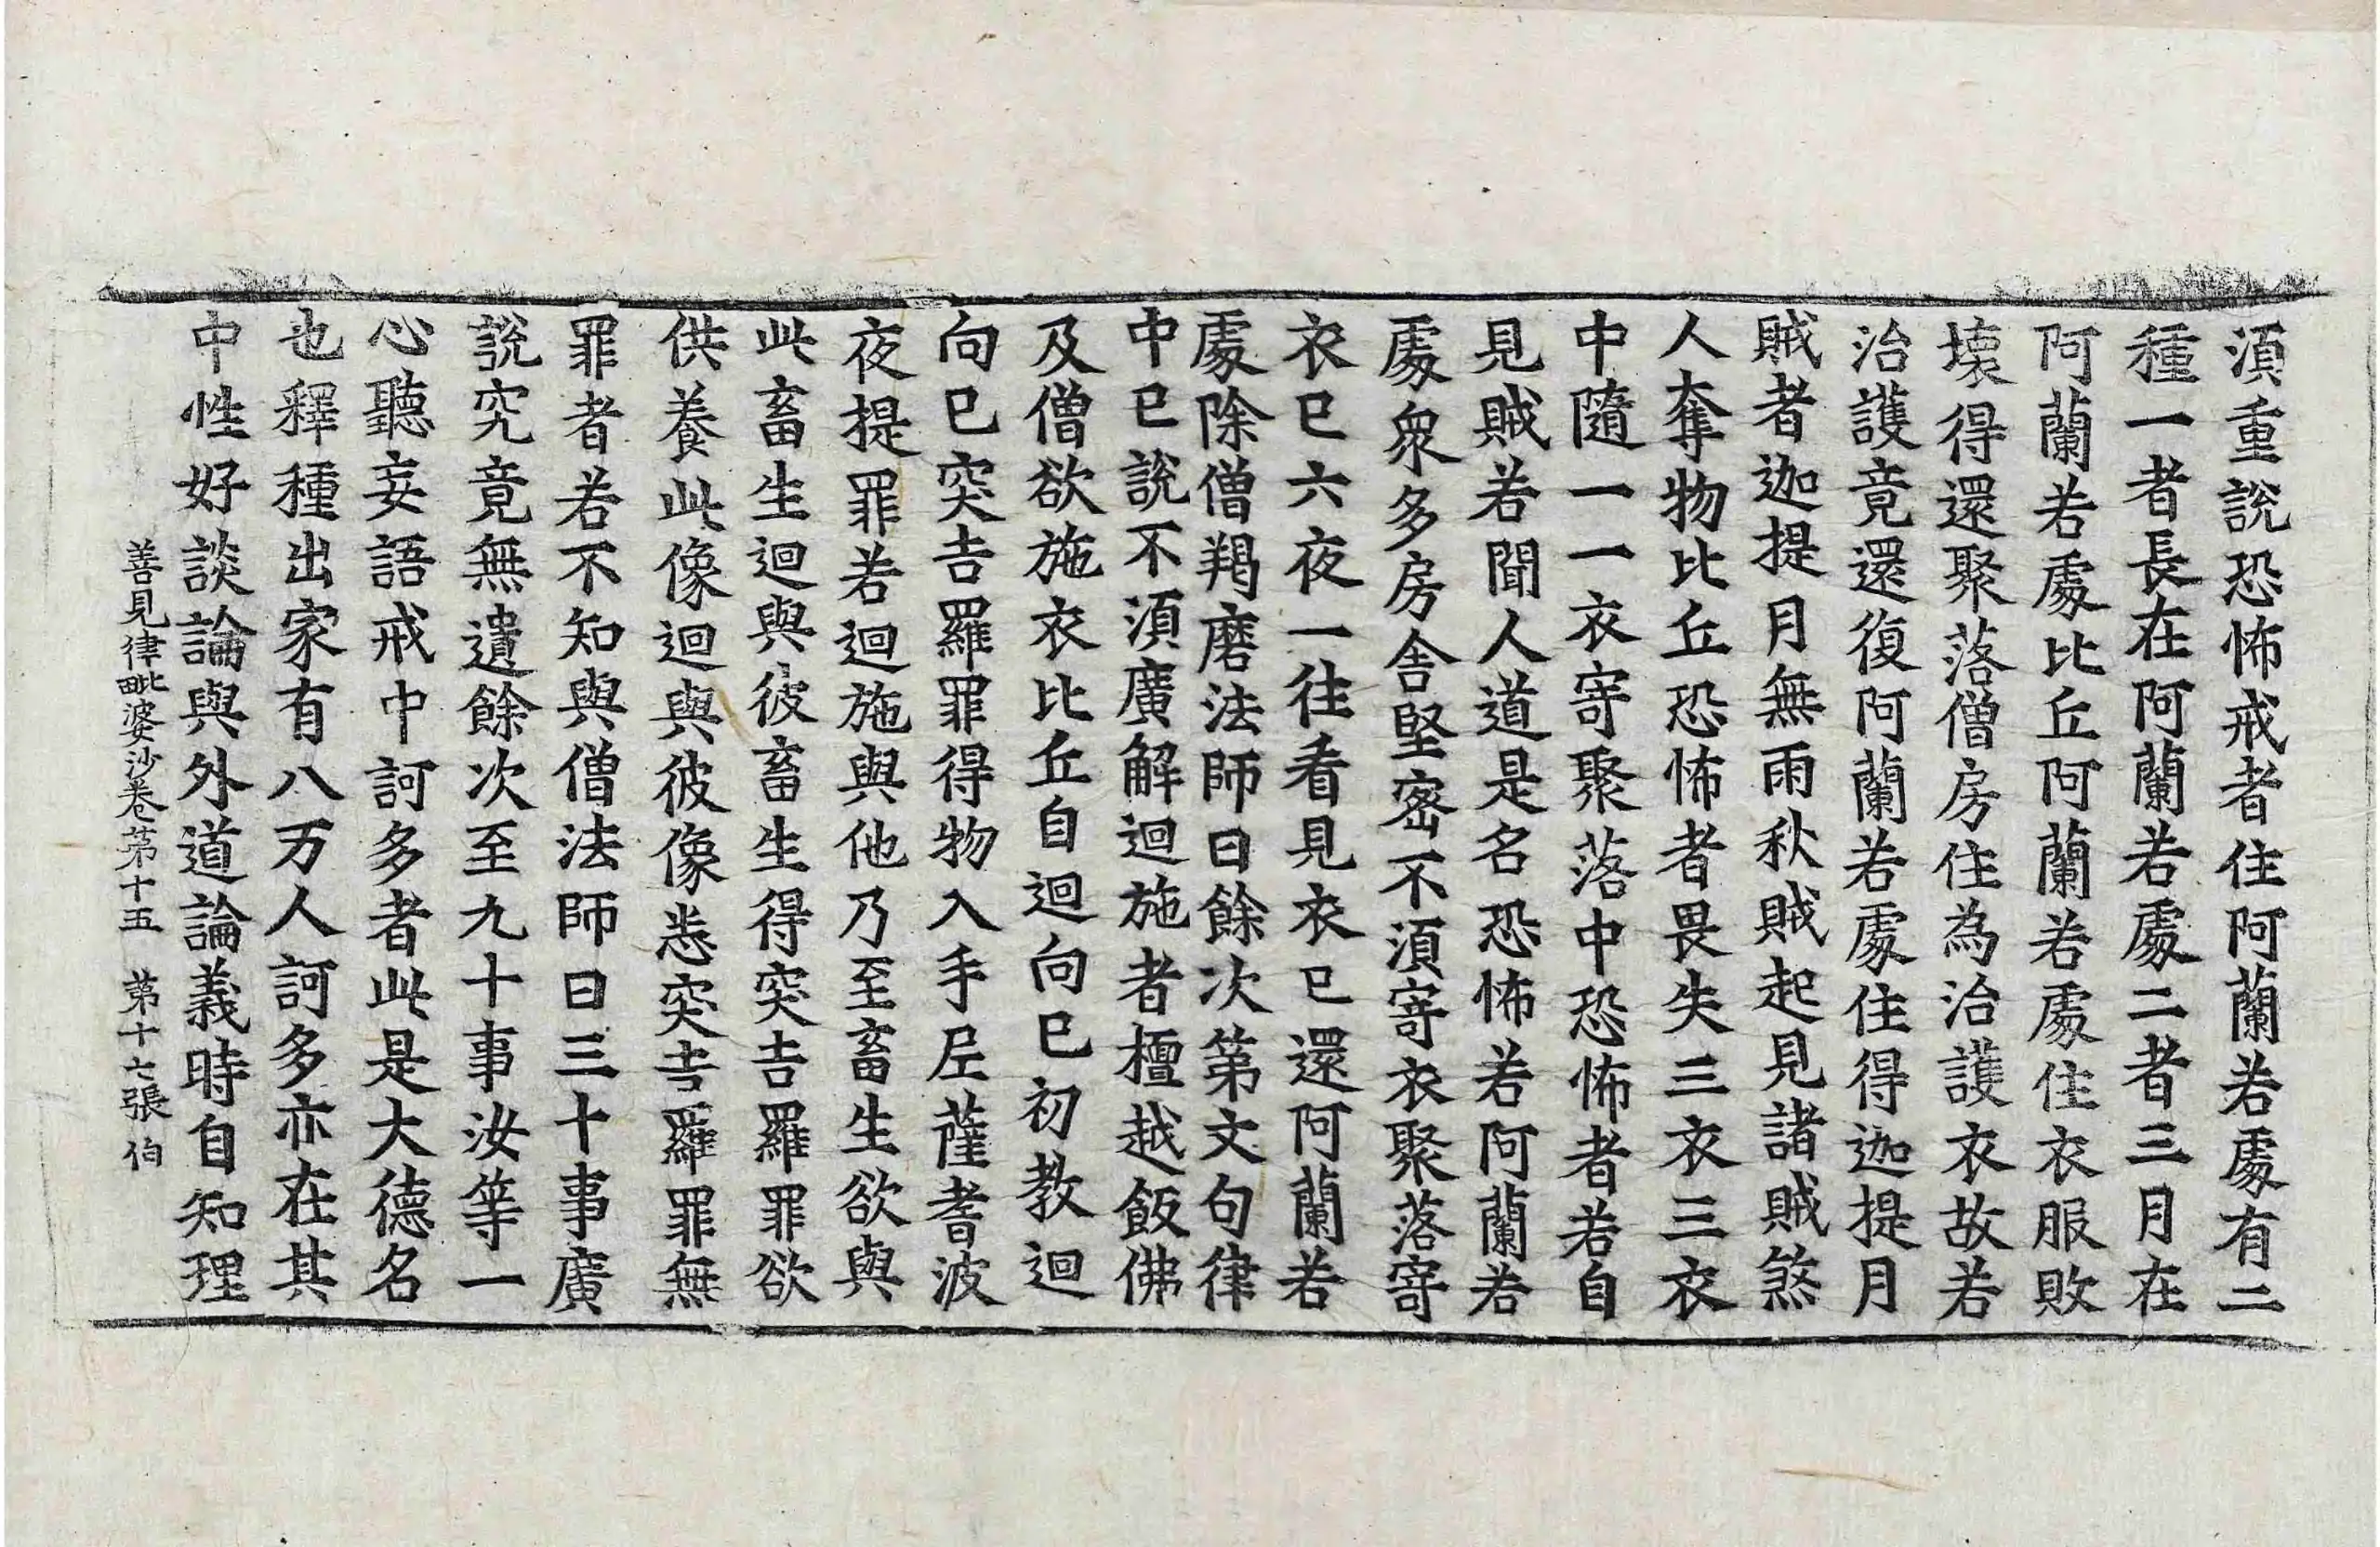 湏重說恐怖戒者住阿蘭若處有二
種一者長在阿蘭若處二者三月在
阿蘭若處比丘阿蘭若處住衣服敗
壞得還聚落僧房住為治護衣故若
治護竟還復阿蘭若處住得迦提月
賊者迦提月無雨秋賊起見諸賊煞
人奪物比丘恐怖者畏失三衣三衣
中隨一一衣寄聚落中恐怖者若自
見賊若聞人道是名恐怖若阿蘭若
處衆多房舍堅密不湏寄衣聚落寄
衣已六夜一往看見衣已還阿蘭若
處除僧羯磨法師曰餘次第文句律
中已說不湏廣解迴施者檀越飯佛
及僧欲施衣比丘自迴向已初教迴
向已突吉羅罪得物入手尼薩耆波
夜提罪若迴施與他乃至畜生欲與
此畜生迴與彼畜生得突吉羅罪欲
供養此像迴與彼像悉突吉羅罪無
罪者若不知與僧法師曰三十事廣
說究竟無遺餘次至九十事汝等一
心聽妄語戒中訶多者此是大德名
也釋種出家有八万人訶多亦在其
中性好談論與外道論義時自知理
善見律毗婆沙卷苐十五　苐十七張　伯